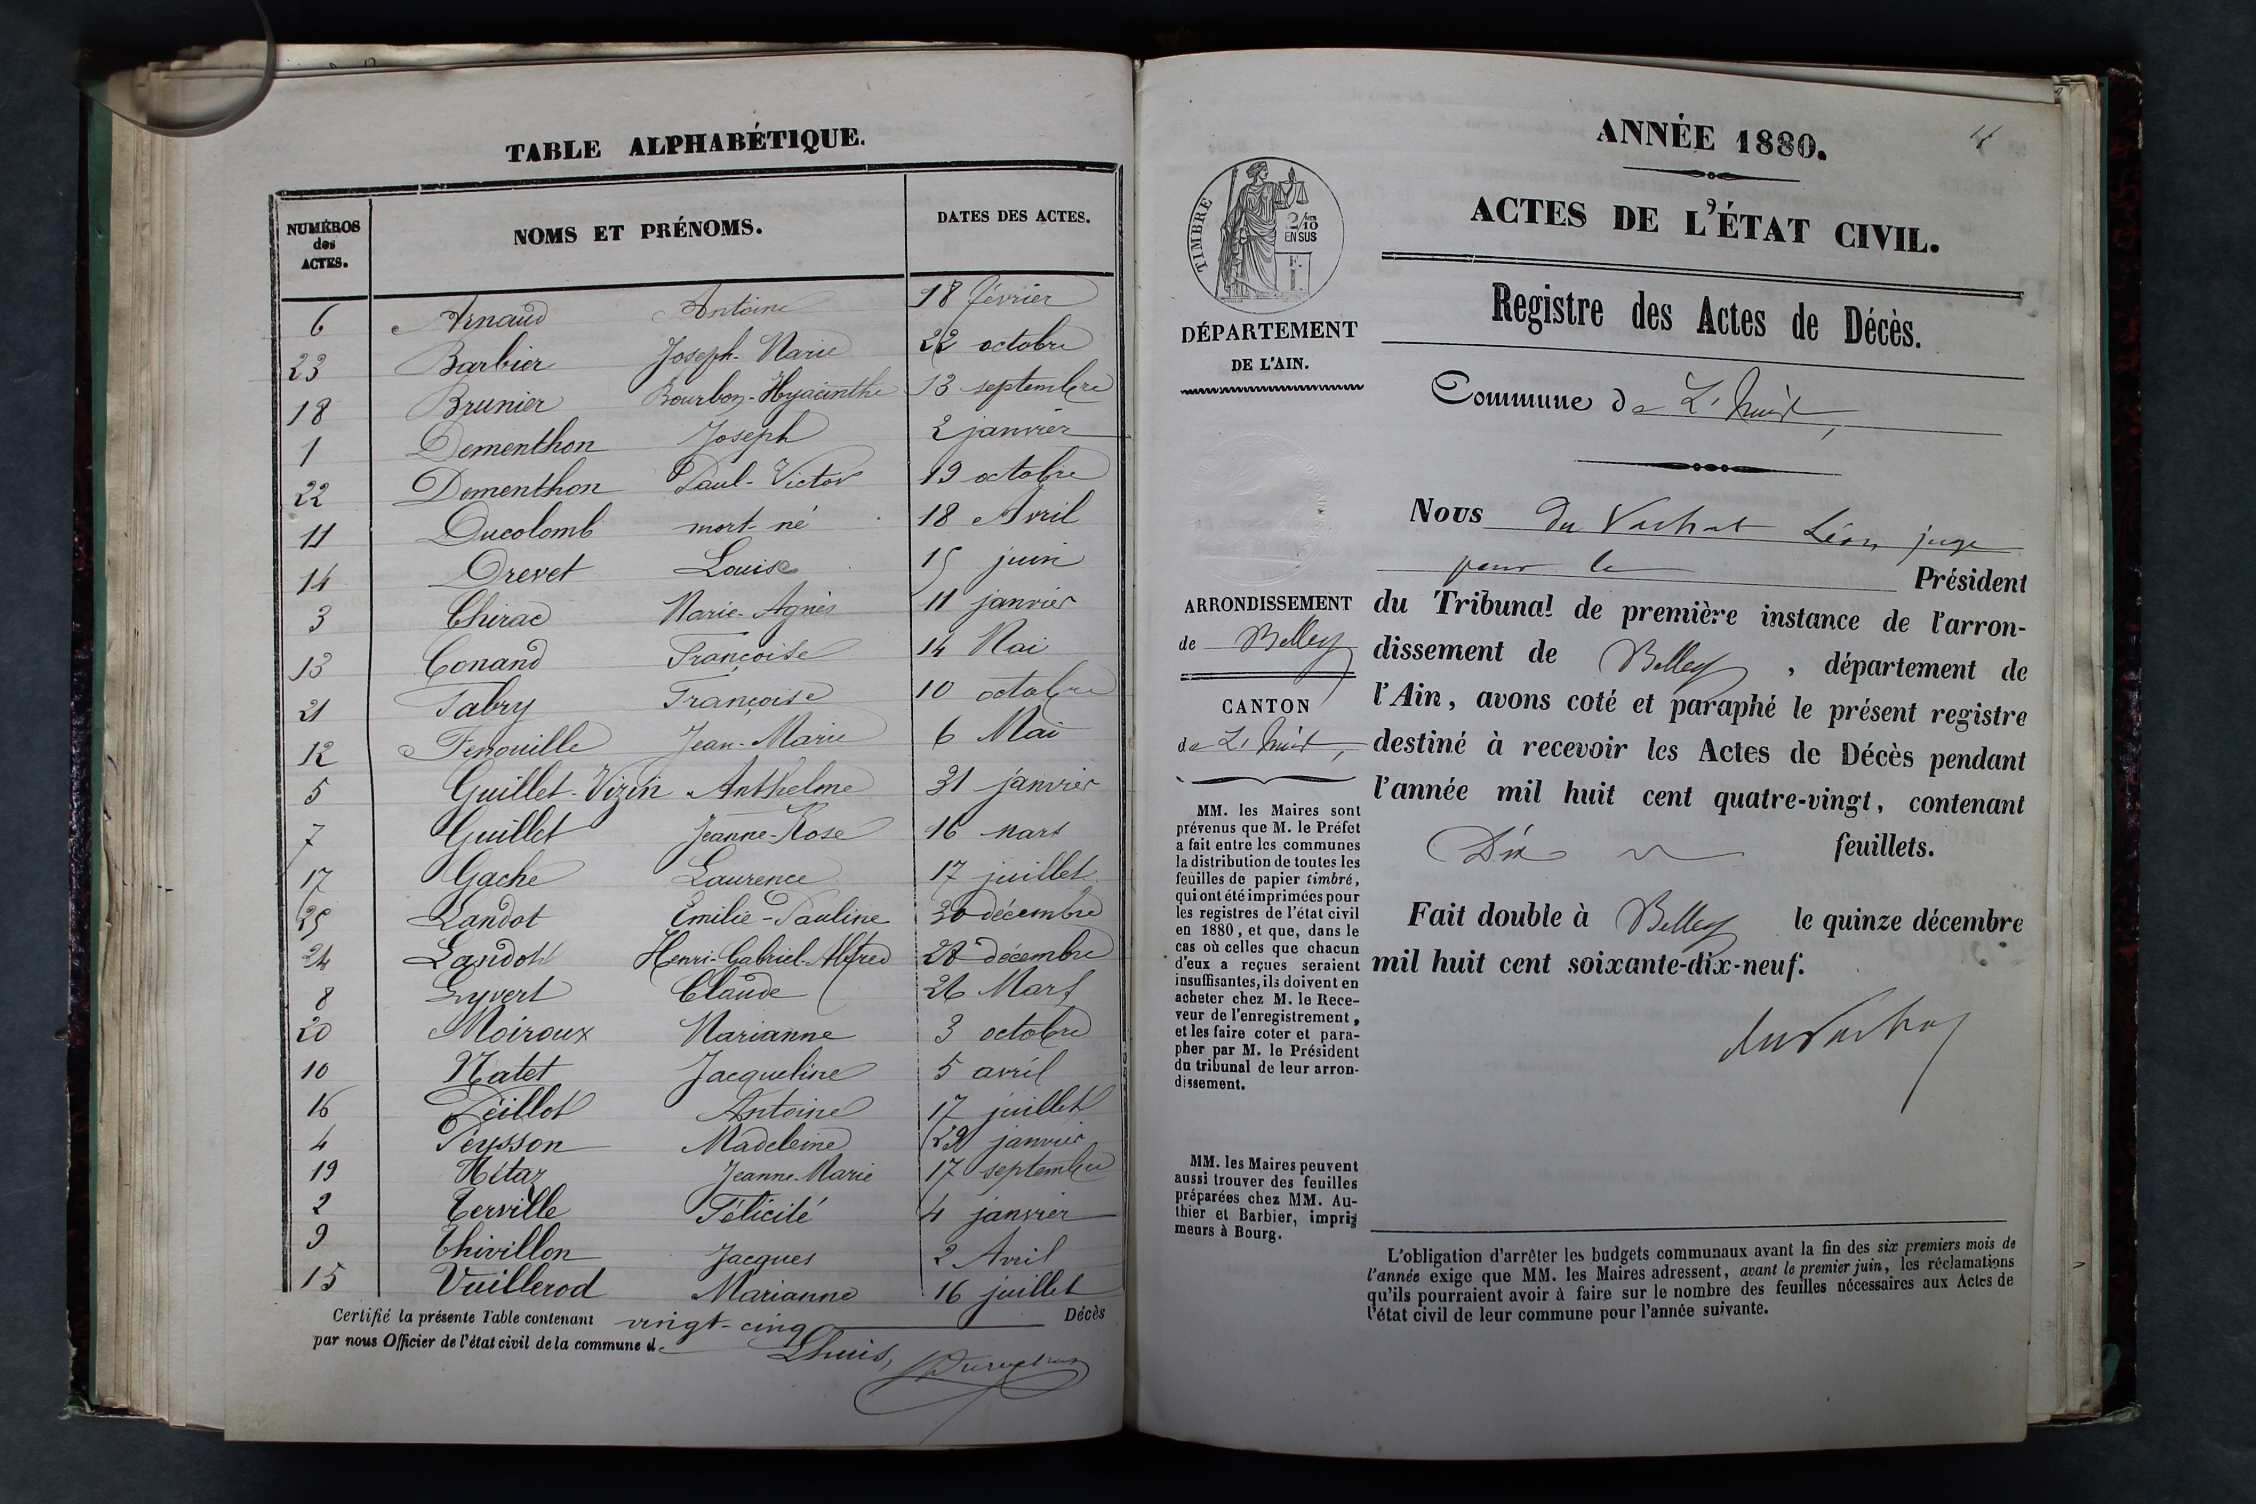 TABLE ALPHABÉTIQUE.
NUMÉROS des ACTES. NOMS ET PRÉNOMS. DATES DES ACTES.
6 Arnaud Antoine 18 février
23 Barbier Joseph-Marie 22 octobre
18 Brunier Bourbon-Hyacinthe 13 septembre
1 Dementhon Joseph 2 janvier
22 Dementhon Paul-Victor 19 octobre
11 Ducolomb mort-né 18 Avril
14 Drevet Louise 15 juin
3 Chirac Marie-Agnès 11 janvier
13 Conand Françoise 14 Mai
21 Fabry Françoise 10 octobre
12 Fenouille Jean-Marie 6 Mai
5 Guillet-Vizin Anthelme 31 janvier
7 Guillet Jeanne-Rose 16 mars
17 Gache Laurence 17 juillet
25 Landot Emilie-Pauline 30 décembre
24 Landot Henri-Gabriel-Alfred 28 décembre
8 Gyvert Claude 26 Mars
20 Moiroux Marianne 3 octobre
10 Natet Jacqueline 5 avril
16 Peillot Antoine 17 juillet
4 Peysson Madeleine 29 janvier
19 Métaz Jeanne-Marie 17 septembre
2 Terville Félicité 4 janvier
9 Thivillon Jacques 2 Avril
15 Vuillerod Marianne 16 juillet
Certifié la présente Table contenant vingt-cinq Décès
par nous Officier de l'état civil de la commune de Lhuis,
ANNÉE 1880.
ACTES DE L'ÉTAT CIVIL.
Registre des Actes de Décès.
Commune de L'huis,
TIMBRE
2/10
EN SUS
DÉPARTEMENT
DE L'AIN.
ARRONDISSEMENT
de Belley
CANTON
de L'huis,
MM. les Maires sont
prévenus que M. le Préfet
a fait entre les communes
la distribution de toutes les
feuilles de papier timbré,
qui ont été imprimées pour
les registres de l'état civil
en 1880, et que, dans le
cas où celles que chacun
d'eux a reçues seraient
insuffisantes, ils doivent en
acheter chez M. le Rece-
veur de l'enregistrement,
et les faire coter et para-
pher par M. le Président
du tribunal de leur arron-
dissement.
MM. les Maires peuvent
aussi trouver des feuilles
préparées chez MM. Au-
thier et Barbier, impri-
meurs à Bourg.
Nous du Vachat Léon, juge
pour le Président
du Tribunal de première instance de l'arron-
dissement de Belley, département de
l'Ain, avons coté et paraphé le présent registre
destiné à recevoir les Actes de Décès pendant
l'année mil huit cent quatre-vingt, contenant
Dix feuillets.
Fait double à Belley le quinze décembre
mil huit cent soixante-dix-neuf.
du Vachat
L'obligation d'arrêter les budgets communaux avant la fin des six premiers mois de
l'année exige que MM. les Maires adressent, avant le premier juin, les réclamations
qu'ils pourraient avoir à faire sur le nombre des feuilles nécessaires aux Actes de
l'état civil de leur commune pour l'année suivante.